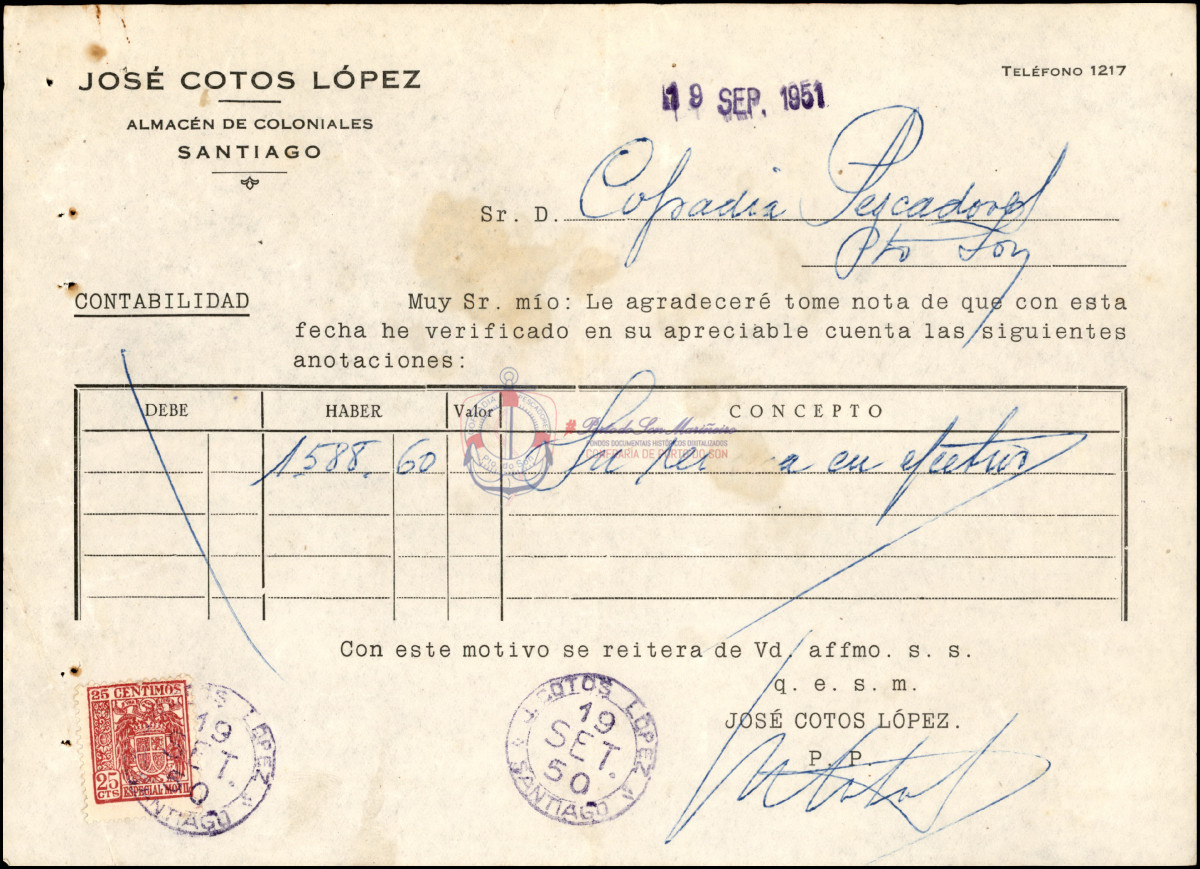 JOSÉ COTOS LÓPEZ
ALMACÉN DE COLONIALES
SANTIAGO
TELÉFONO 1217
19 SEP. 1951
Sr. D. Cofradia Pescadores
Pto Son
CONTABILIDAD
Muy Sr. mío: Le agradeceré tome nota de que con esta
fecha he verificado en su apreciable cuenta las siguientes
anotaciones:
DEBE HABER Valor CONCEPTO
1588,60 Su a en efectivo
# Porto do Son Mariñeiro
FONDOS DOCUMENTAIS HISTÓRICOS DIXITALIZADOS
CONFRARÍA DE PORTO DO SON
Con este motivo se reitera de Vd. affmo. s. s.
q. e. s. m.
JOSÉ COTOS LÓPEZ.
P. P.
25 CENTIMOS
25 CTS
ESPECIAL MOVIL
LOPEZ
19
SET.
50
SANTIAGO
J. COTOS LOPEZ
19
SET.
50
SANTIAGO